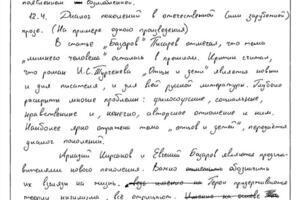 появлением — возлюбленной.
12.4. Диалог поколений в отечественной (или зарубежной)
прозе. (На примере одного произведения)
В статье „Базаров" Писарев отмечал, что тема
„лишнего человека осталась в прошлом. Критик считал,
что роман И.С.Тургенева „Отцы и дети" является новым
и для писателя, и для всей русской литературы. Глубоко
раскрыты многие проблемы: философские, социальные,
нравственные и, конечно, авторское отношение к ним.
Наиболее ярко отражена тема „отцов и детей", передаётся
диалог поколений.
Аркадий Кирсанов и Евгений Базаров являются предста-
вителями нового поколения. Важно обозначить
их взгляды на жизнь. Герои придерживаются
теории нигилизма, всё отрицают. Именно на основе